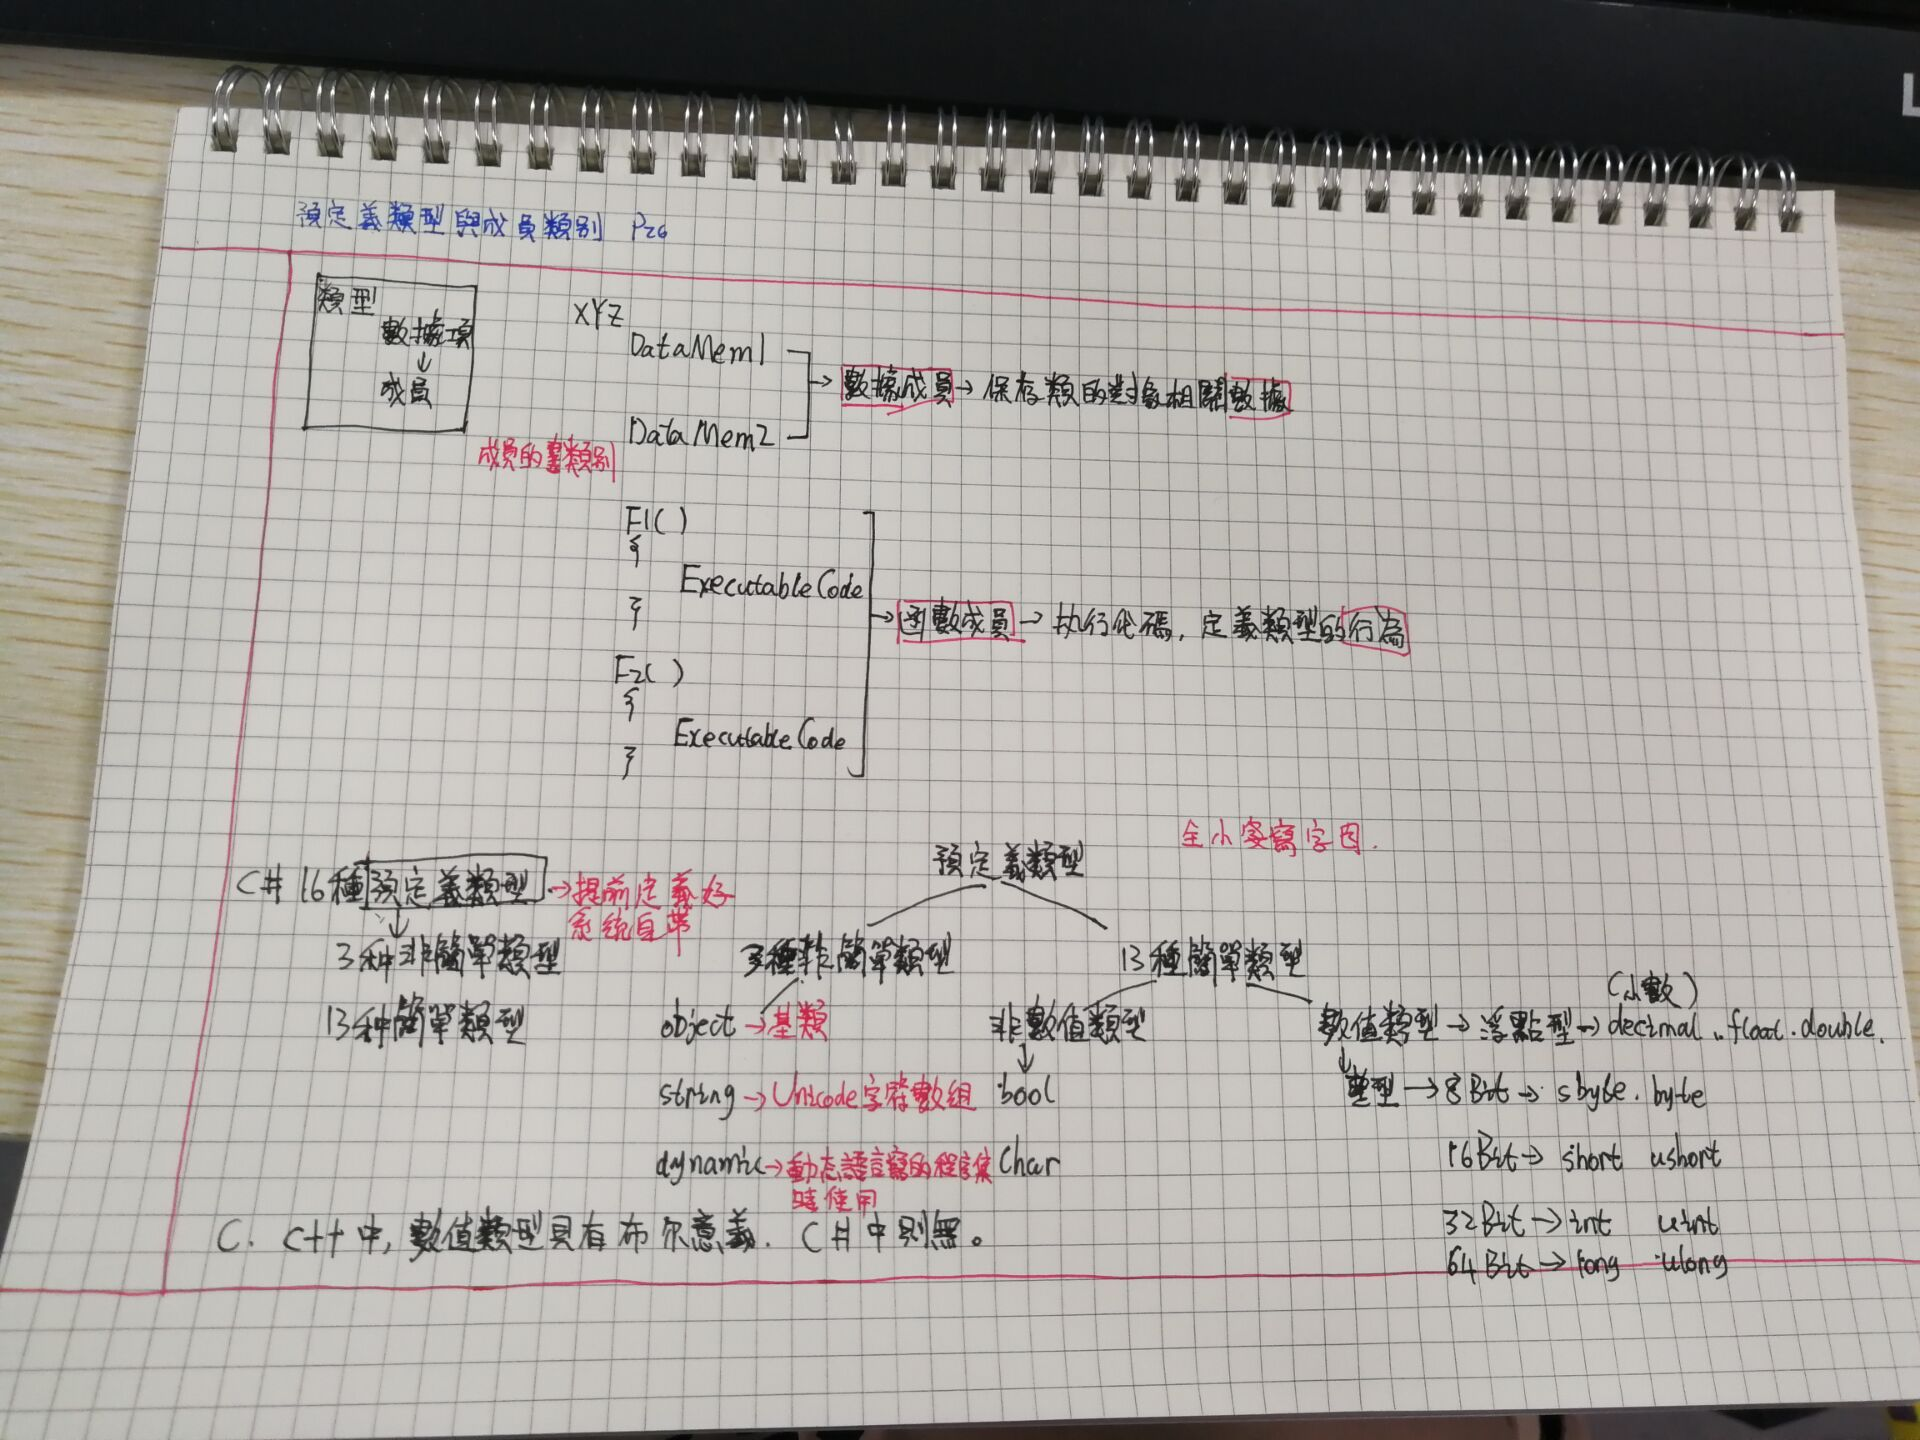 預定義類型與成員類別 P26
類型
數據項
↓
成員
XYZ
DataMem1
DataMem2
→ 數據成員 → 保存類的對象相關數據
成員的類別
F1( )
{
ExecutableCode
}
F2( )
{
ExecutableCode
}
→ 函數成員 → 执行代碼，定義類型的行為
C# 16種預定義類型 → 提前定義好
系統自帶
↓
3种非簡單類型
13种簡單類型
全小寫字母.
預定義類型
3種非簡單類型
13種簡單類型
object → 基類
string → Unicode字符數組
dynamic → 動态語言寫的程序集
時使用
非數值類型
↓
bool
Char
(小數)
數值類型 → 浮點型 → decimal . float . double .
↓
整型 → 8Bit → sbyte . byte
16Bit → short ushort
32Bit → int uint
64Bit → long ulong
C. C++中, 數值類型具有布尔意義. C#中則無。